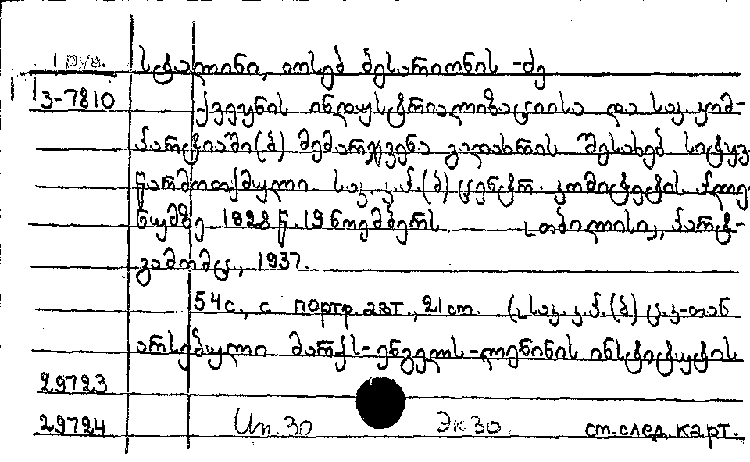 1 рув.
სტალინი, იოსებ ბესარიონის -ძე
3-7810
ქვეყნის ინდუსტრიალიზაციისა და საკ. კომ-
პარტიაში(ბ) მემარჯვენა გადახრის შესახებ. სიტყვა
წარმოთქმული საკ. კ. პ. (ბ) ცენტრ. კომიტეტის პლე-
ნუმზე 1928 წ. 19 ნოემბერს. თბილისი, პარტ-
გამომც., 1937.
54 с., с портр. авт., 21 cm. (საკ. კ. პ. (ბ) ც. კ-თან
არსებული მარქს-ენგელს-ლენინის ინსტიტუტის
29723
29724 Ип. 30 Эк 30. ст. след. карт.